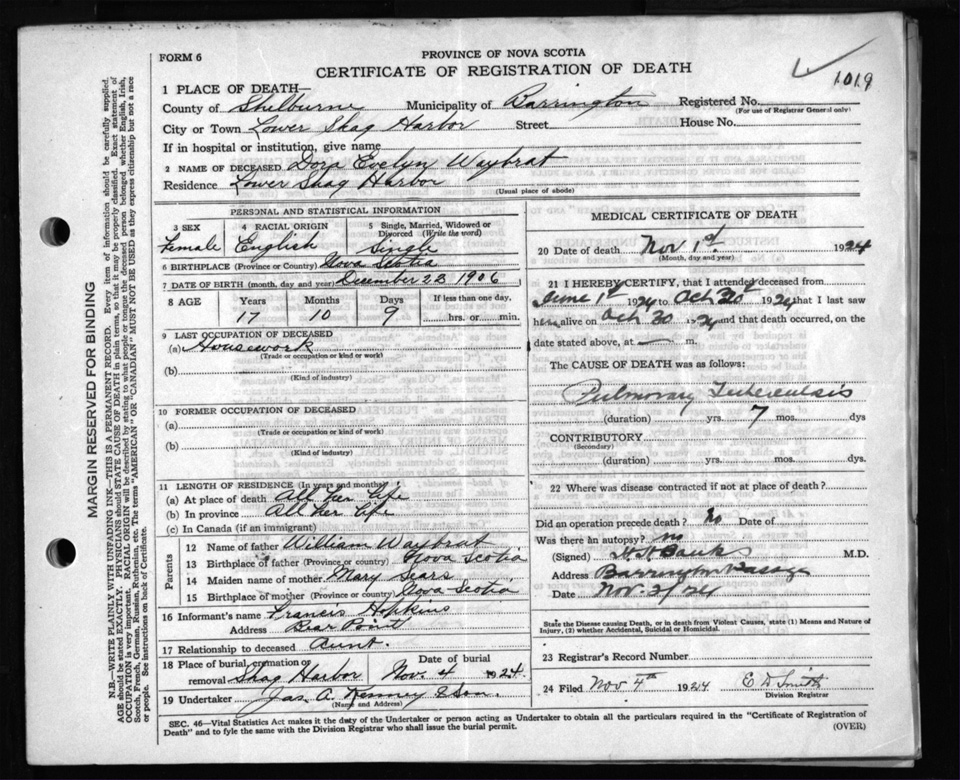 1019
FORM 6
PROVINCE OF NOVA SCOTIA
CERTIFICATE OF REGISTRATION OF DEATH
MARGIN RESERVED FOR BINDING
N.B.—WRITE PLAINLY WITH UNFADING INK—THIS IS A PERMANENT RECORD. Every item of information should be carefully supplied.
AGE should be stated EXACTLY. PHYSICIANS should STATE CAUSE OF DEATH in plain terms, so that it may be properly classified. Exact statement of
OCCUPATION is very important. RACIAL ORIGIN will be described by stating to what people or tongue the deceased person belonged whether English, Irish,
Scotch, French, German, Russian, Ruthenian, etc. The terms "AMERICAN" OR "CANADIAN" MUST NOT BE USED as they express citizenship but not a race
or people. See instructions on back of Certificate.
1 PLACE OF DEATH—
County of Shelburne Municipality of Barrington Registered No.
(For use of Registrar General only)
City or Town Lower Shag Harbor Street House No.
If in hospital or institution, give name
2 NAME OF DECEASED Dora Evelyn Waybrat
Residence Lower Shag Harbor
(Usual place of abode)
PERSONAL AND STATISTICAL INFORMATION
3 SEX 4 RACIAL ORIGIN 5 Single, Married, Widowed or Divorced (Write the word)
Female English Single
6 BIRTHPLACE (Province or Country) Nova Scotia
7 DATE OF BIRTH (month, day and year) December 23 1906
8 AGE Years Months Days If less than one day,
17 10 9 hrs. or min.
9 LAST OCCUPATION OF DECEASED
(a) Housework
(Trade or occupation or kind or work)
(b)
(Kind of industry)
10 FORMER OCCUPATION OF DECEASED
(a)
(Trade or occupation or kind or work)
(b)
(Kind of industry)
11 LENGTH OF RESIDENCE (In years and months)
(a) At place of death All her life
(b) In province All her life
(c) In Canada (if an immigrant)
Parents
12 Name of father William Waybrat
13 Birthplace of father (Province or country) Nova Scotia
14 Maiden name of mother Mary Sears
15 Birthplace of mother (Province or country) Nova Scotia
16 Informant's name Francis Hopkins
Address Bear Point
17 Relationship to deceased Aunt.
18 Place of burial, cremation or removal Shag Harbor Date of burial Nov. 4 1924.
19 Undertaker Jas. A. Kenney & Son.
(Name and Address)
MEDICAL CERTIFICATE OF DEATH
20 Date of death Nov 1st. 1924
(Month, day and year)
21 I HEREBY CERTIFY, that I attended deceased from
June 1st 1924 to Oct 30th 1924 that I last saw
her alive on Oct 30 1924 and that death occurred, on the
date stated above, at — m.
The CAUSE OF DEATH was as follows:
Pulmonary Tuberculosis
(duration) yrs. 7 mos. dys
CONTRIBUTORY
(Secondary)
(duration) yrs. mos. dys.
22 Where was disease contracted if not at place of death?
Did an operation precede death? No Date of
Was there an autopsy? no
(Signed) H H Banks M.D.
Address Barrington Passage
Nov. 2/24
State the Disease causing Death, or in death from Violent Causes, state (1) Means and Nature of
Injury, (2) whether Accidental, Suicidal or Homicidal.
23 Registrar's Record Number
24 Filed Nov 4th 1924 E D Smith
Division Registrar
SEC. 46—Vital Statistics Act makes it the duty of the Undertaker or person acting as Undertaker to obtain all the particulars required in the "Certificate of Registration of
Death" and to fyle the same with the Division Registrar who shall issue the burial permit.
(OVER)